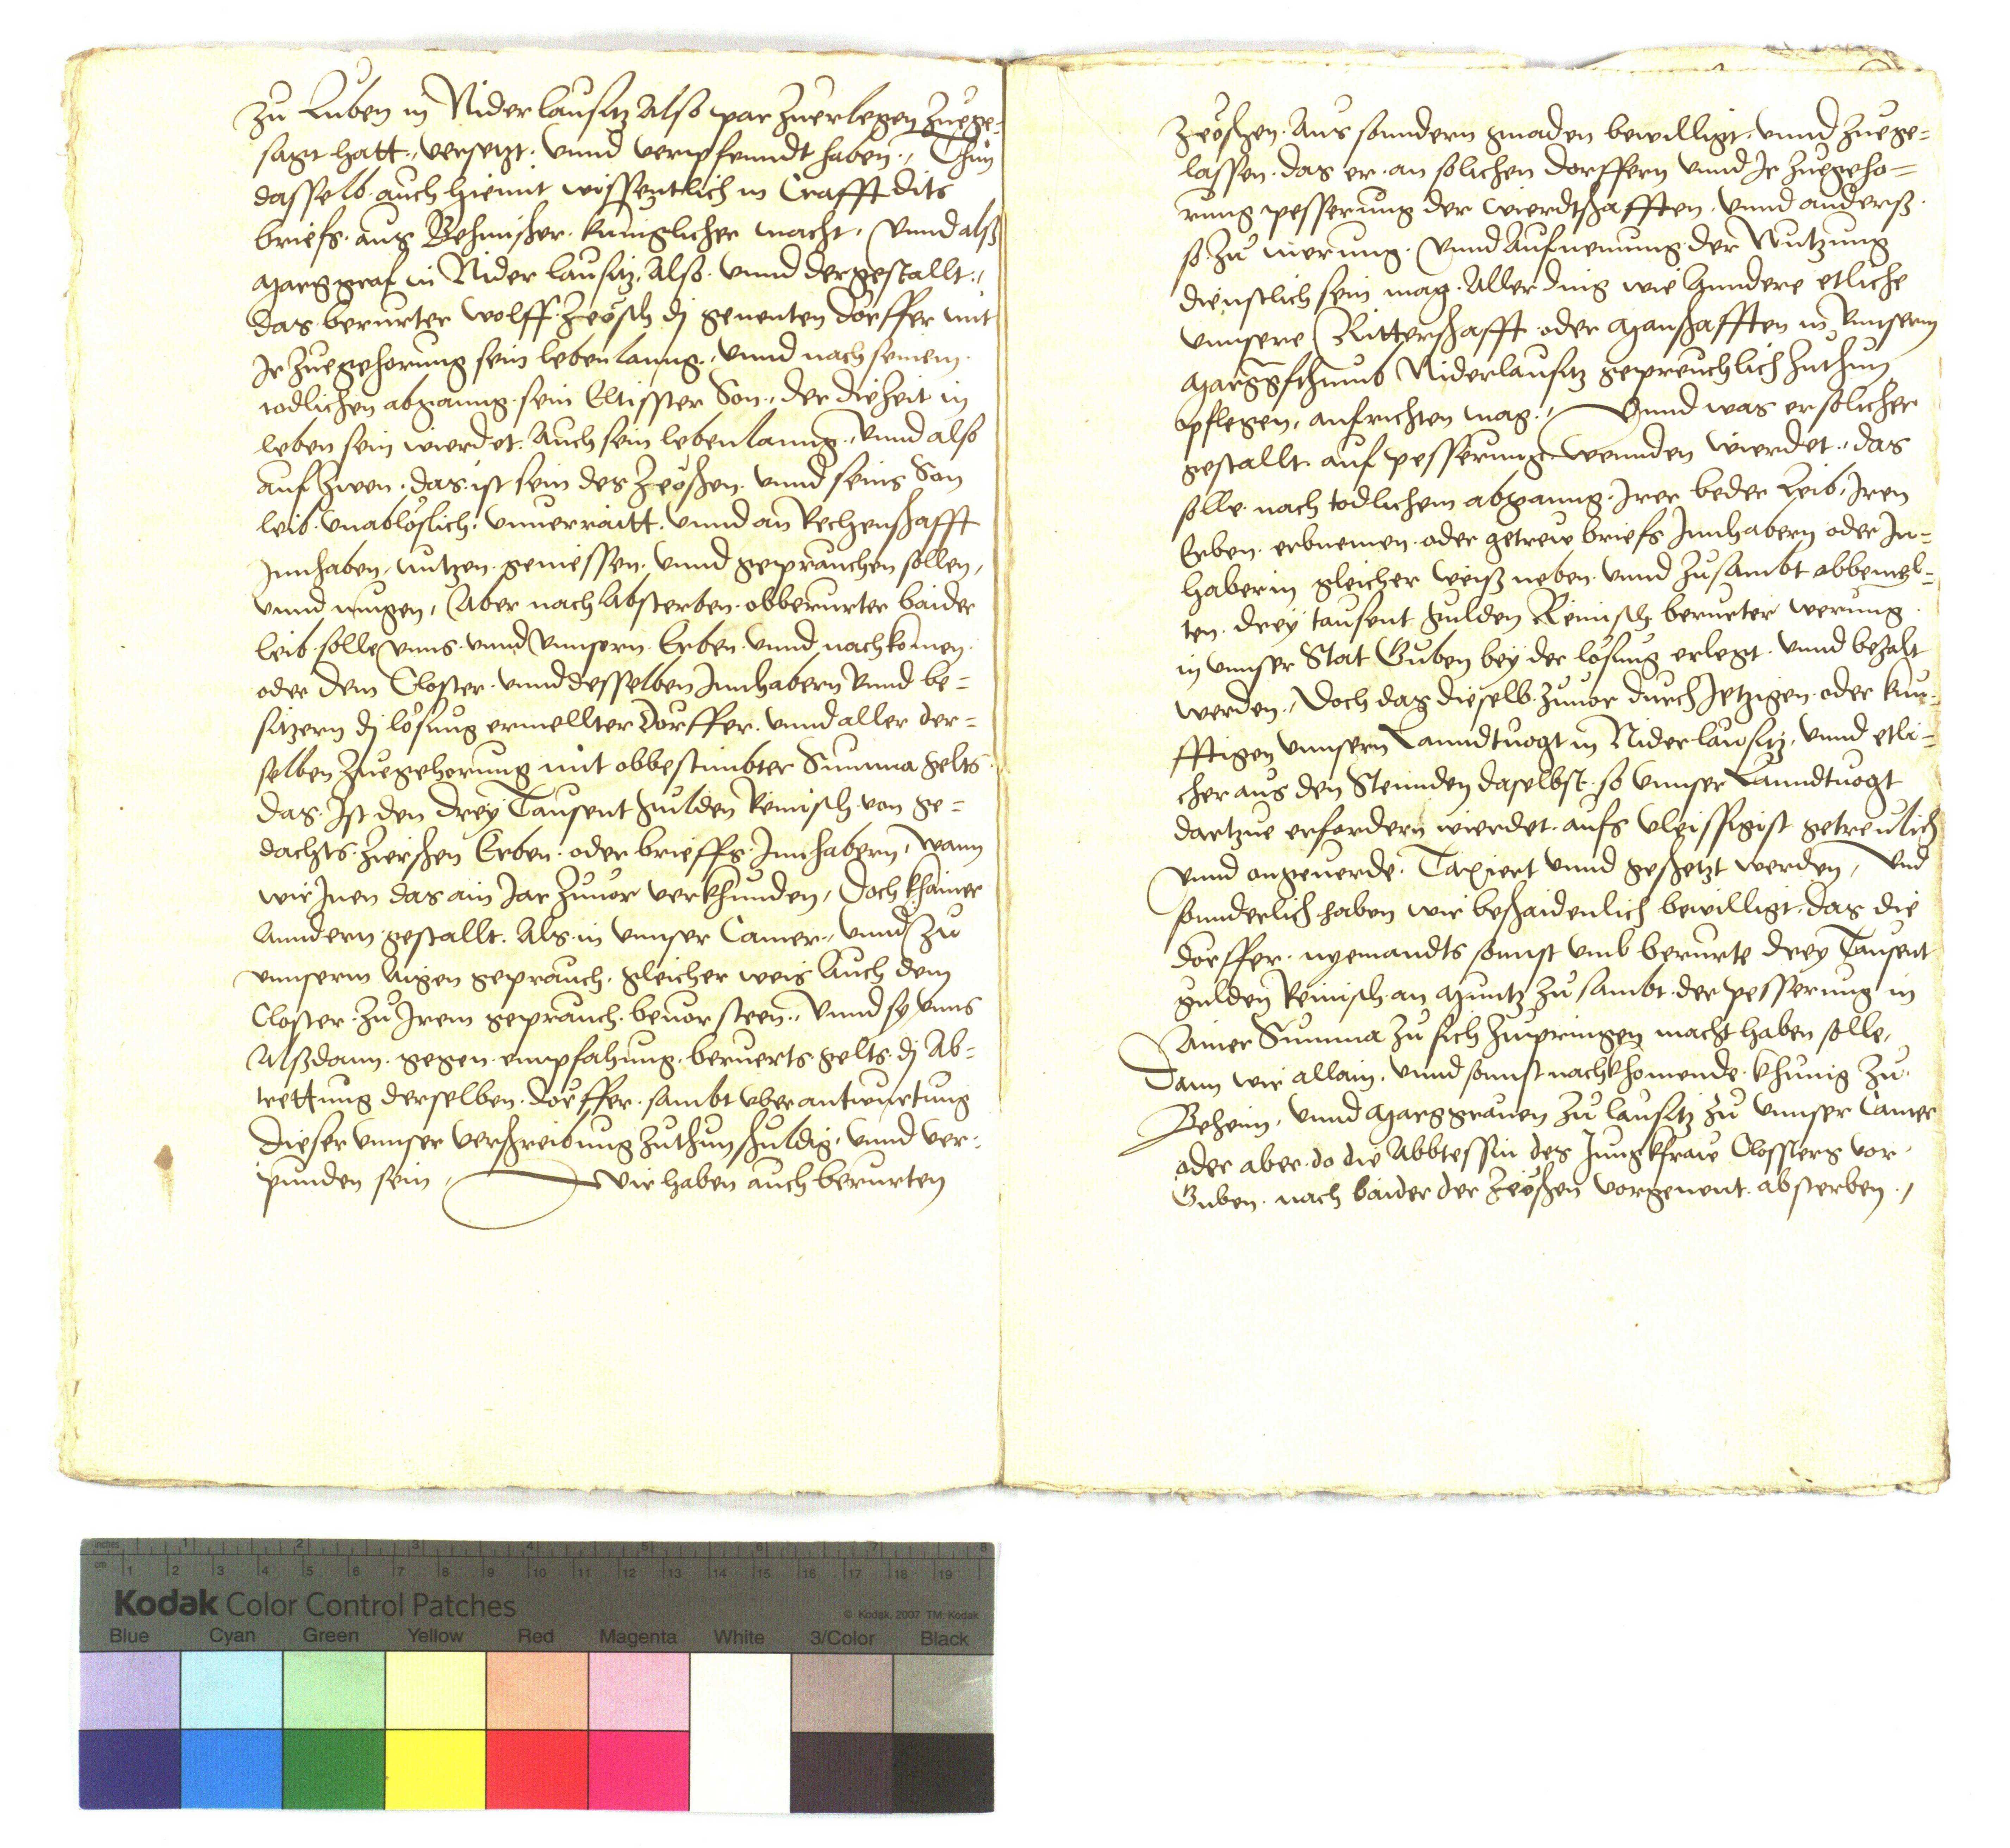 zu Luben in Niderlausitz also par zuerlegen zuege-
sagt hatt, versetzt vnnd verpfenndt haben, Thun
dasselb auch hiemit wissenntlich in Crafft dits
briefs aus Behmischer kuniglicher macht, vnnd alß
Marggraf in Nider lausitz, Also vnnd dergestallt,
das berurter wolff Zeösch dj genenten Dörffer mit
Ir Zuegehorung sein lebenlanng, vnnd nach seinem
todlichen abganng sein Elltisster Son, der die Zeit in
leben sein wierdet, Auch sein lebenlanng, vnnd also
auf zwen, das ist sein des Zeöschen vnnd seins Son
leib vnablöslich, vnuerraitt, vnnd an Rechenschafft
Innhaben, nutzen geniessen vnnd geprauchen sollen,
vnnd mugen, Aber nach Absterben obberurter baider
leib solle vnns vnnd vnnsern Erben vnnd nachkomen
oder dem Closter vnnd desselben Innhabern vnnd be-
sitzern dj lösung ermellter Dörffer vnnd aller der-
selben Zuegehorung mit obbestimbter Summa gelts
das Ist den drey Tausent gulden Reinisch von ge-
dachts Erben oder brieffs Innhabern, wann
wir Inen das ain Jar zuuor verkhunden, Doch khainer
Anndern gestallt Als in vnnser Camer, vnnd zu
vnnserm Aigen geprauch, gleicher weis Auch dem
Closter zu Irem geprauch beuor steen, vnnd sy vnns
Alßdann gegen emphahung beruerts gelts dj Ab-
trettung derselben dörffer sambt vberantwurtung
dieser vnnser verschreibung zuthun schuldig vnnd ver-
punden sein, Wir haben auch berurten
Zeöschen Aus sonndern gnaden bewilligt, vnnd zuege-
lassen, das er an solichen dorffern vnnd Ir zuegeho-
rung pesserung der wierdtschafften vnnd anderß
so zu merung vnnd Aufnemung der Nutzung
dienstlich sein mag, Aller ding wie Anndere etliche
vnnsere Ritterschafft oder Manschafften in vnnserm
Marggfthumb Niderlausitz gepreuchlich zuthun
pflegen, aufrichten mag, Vnnd was er solicher
gestallt auf pesserung wennden wierdet, das
solle nach todlichem abganng, Irer beder Leib, Iren
Erben erbnemen oder getrew briefs Innhabern oder In-
haberin gleicher weiß neben vnnd zusambt obbemel-
ten drey tausent gulden Reinisch berurter werung
in vnnser Stat Guben bey der lösung erlegt vnnd bezalt
werden, Doch das dieselb zuuor durch Jetzigen oder kun-
fftigen vnnsern Lanndtuogt in Niderlausitz, vnnd etli-
cher aus den Stennden daselbst so vnnser Lanndtuogt
dartzue erfordern wierdet, aufs vleissigist getreulich
vnnd ongeuerde, Taxiert vnnd geschetzt werden, Vnd
sonnderlich haben wir beschaidenlich bewilligt, das die
dörffer nyemandts sonnst vmb berurte drey Tausent
gulden Reinisch an Muntz zu sambt der pesserung in
Ainer Summa zu sich zupringen macht haben solle,
Dann wir allain, vnnd sonnst nachkhomende khunig zu
Beheim, vnnd Marggrauen zu lausitz zu vnnser Camer
oder aber do die Abbtessin des Jungkfraw Clossters vor
Guben nach baider der Zeöschen vorgenent absterben,